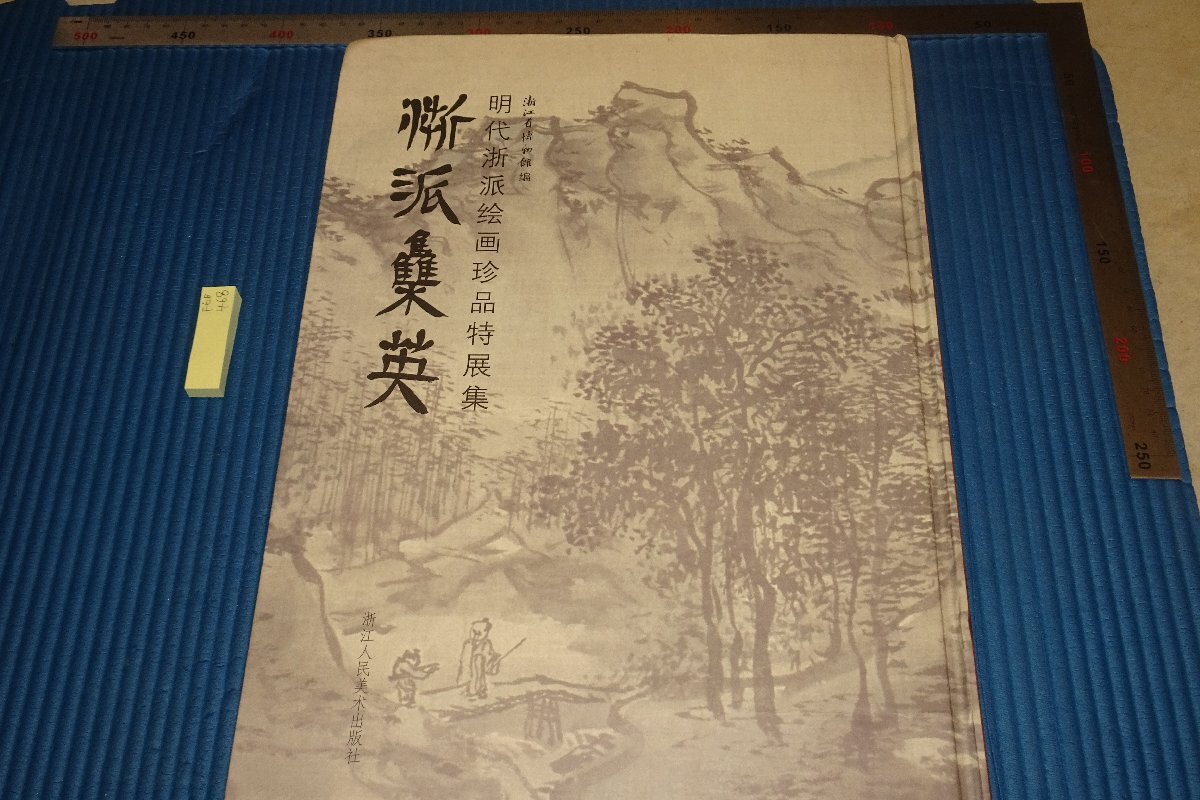 500 450 400 350 300 250 200 150 100 50
50
100
150
200
250
浙江省博物館编
明代浙派绘画珍品特展集
浙派集英
浙江人民美术出版社